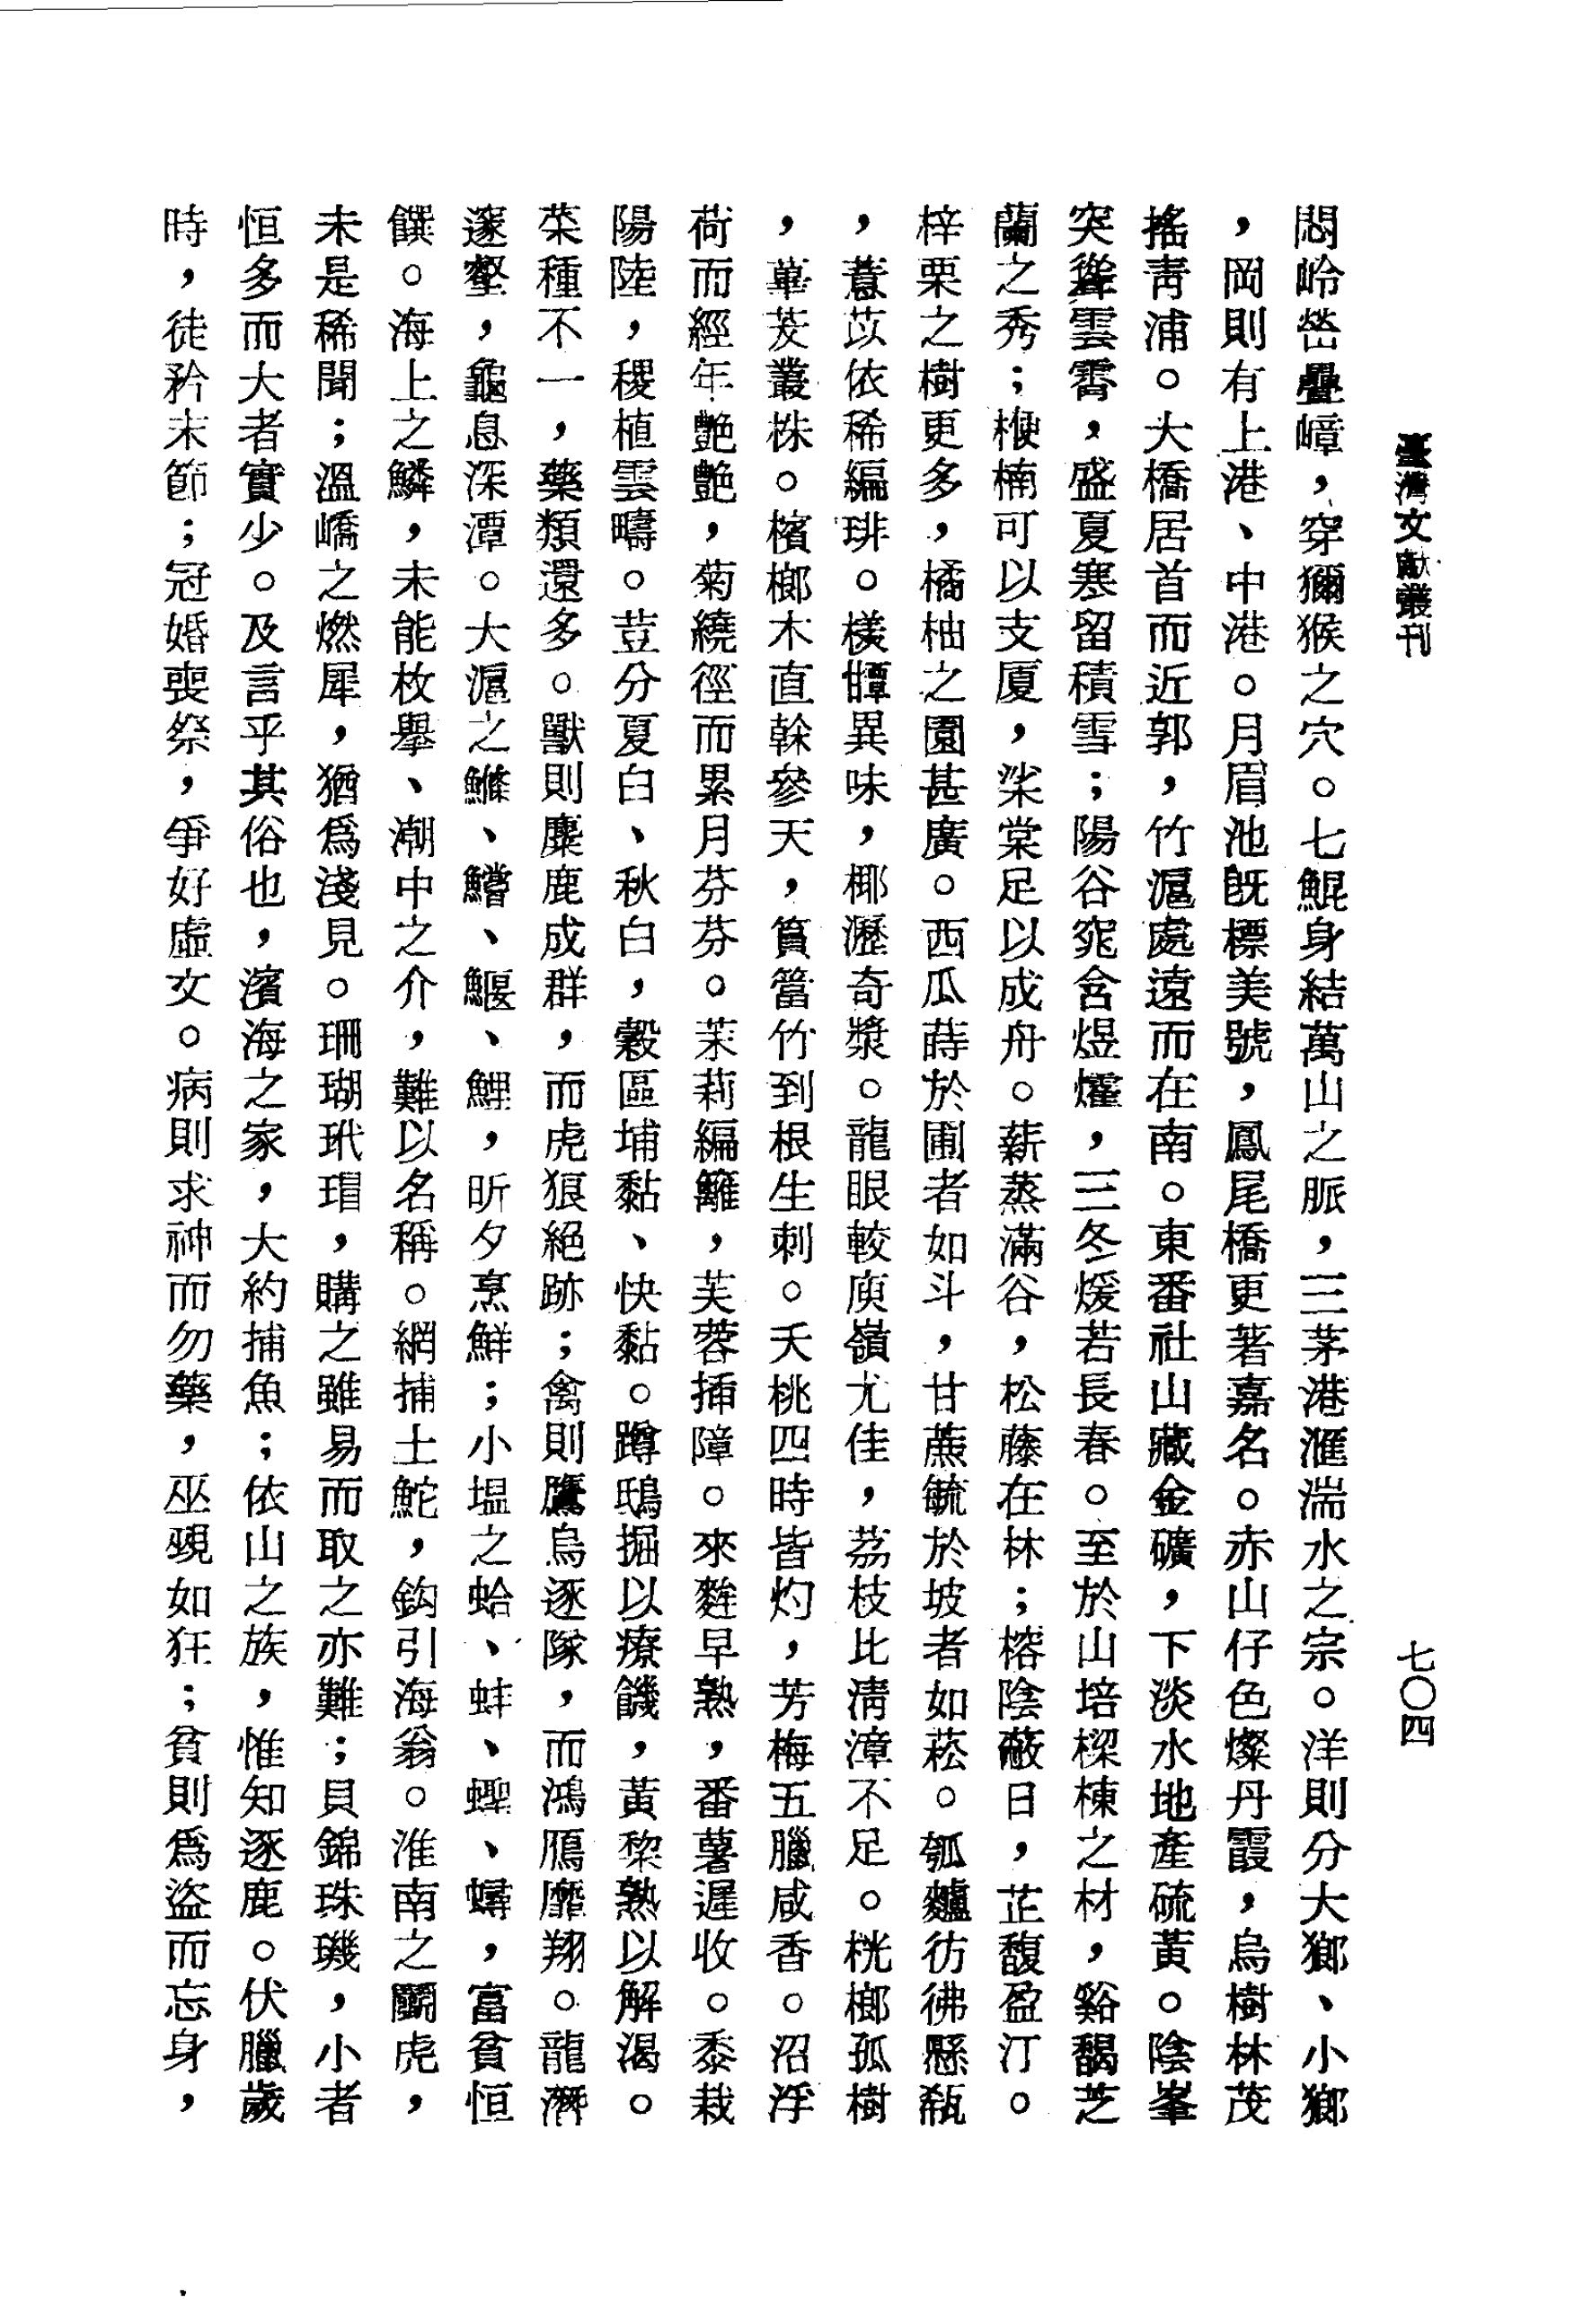 臺灣文獻叢刊
七〇四
悶岭嵤疊嶂，穿獼猴之穴。七鯤身結萬山之脈，三茅港滙湍水之宗。洋則分大鄉、小鄉
，岡則有上港、中港。月眉池旣標美號，鳳尾橋更著嘉名。赤山仔色燦丹霞，烏樹林茂
搖靑浦。大橋居首而近郭，竹滬處遠而在南。東番社山藏金礦，下淡水地產硫黃。陰峯
突聳雲霄，盛夏寒留積雪；陽谷窕含煜爟，三冬煖若長春。至於山培樑棟之材，谿馤芝
蘭之秀；楩楠可以支厦，枽棠足以成舟。薪蒸滿谷，松藤在林；榕陰蔽日，芷馥盈汀。
梓栗之樹更多，橘柚之園甚廣。西瓜蒔於圃者如斗，甘蔗毓於坡者如菘。瓠匏彷彿懸瓴
，薏苡依稀編琲。樣𣐿異味，椰瀝奇漿。龍眼較庾嶺尤佳，荔枝比淸漳不足。桄榔孤樹
，蓽茇叢株。檳榔木直榦參天，篔簹竹到根生刺。夭桃四時皆灼，芳梅五臘咸香。沼浮
荷而經年艷艷，菊繞徑而累月芬芬。茉莉編籬，芙蓉揷障。來麰早熟，番薯遲收。黍栽
陽陸，稷植雲疇。荳分夏白、秋白，穀區埔黏、快黏。蹲鴟掘以療饑，黃黎熟以解渴。
菜種不一，藥類還多。獸則麋鹿成群，而虎狼絕跡；禽則鷹烏逐隊，而鴻鴈靡翔。龍潛
邃壑，龜息深潭。大滬之鰷、鱛、鰋、鯉，昕夕烹鮮；小塭之蛤、蚌、蟶、蟳，富貧恒
饌。海上之鱗，未能枚擧、潮中之介，難以名稱。網捕土鮀，鈎引海翁。淮南之鬭虎，
未是稀聞；溫嶠之燃犀，猶爲淺見。珊瑚玳瑁，購之雖易而取之亦難；貝錦珠璣，小者
恒多而大者實少。及言乎其俗也，濱海之家，大約捕魚；依山之族，惟知逐鹿。伏臘歲
時，徒矜末節；冠婚喪祭，爭好虛文。病則求神而勿藥，巫覡如狂；貧則爲盜而忘身，